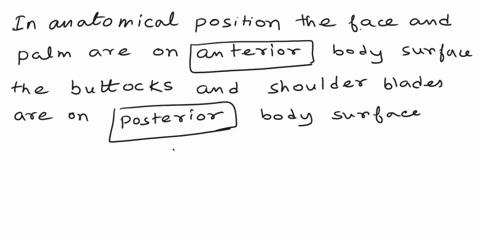 In anatomical position the face and
palm are on anterior body surface
the buttocks and shoulder blades
are on posterior body surface